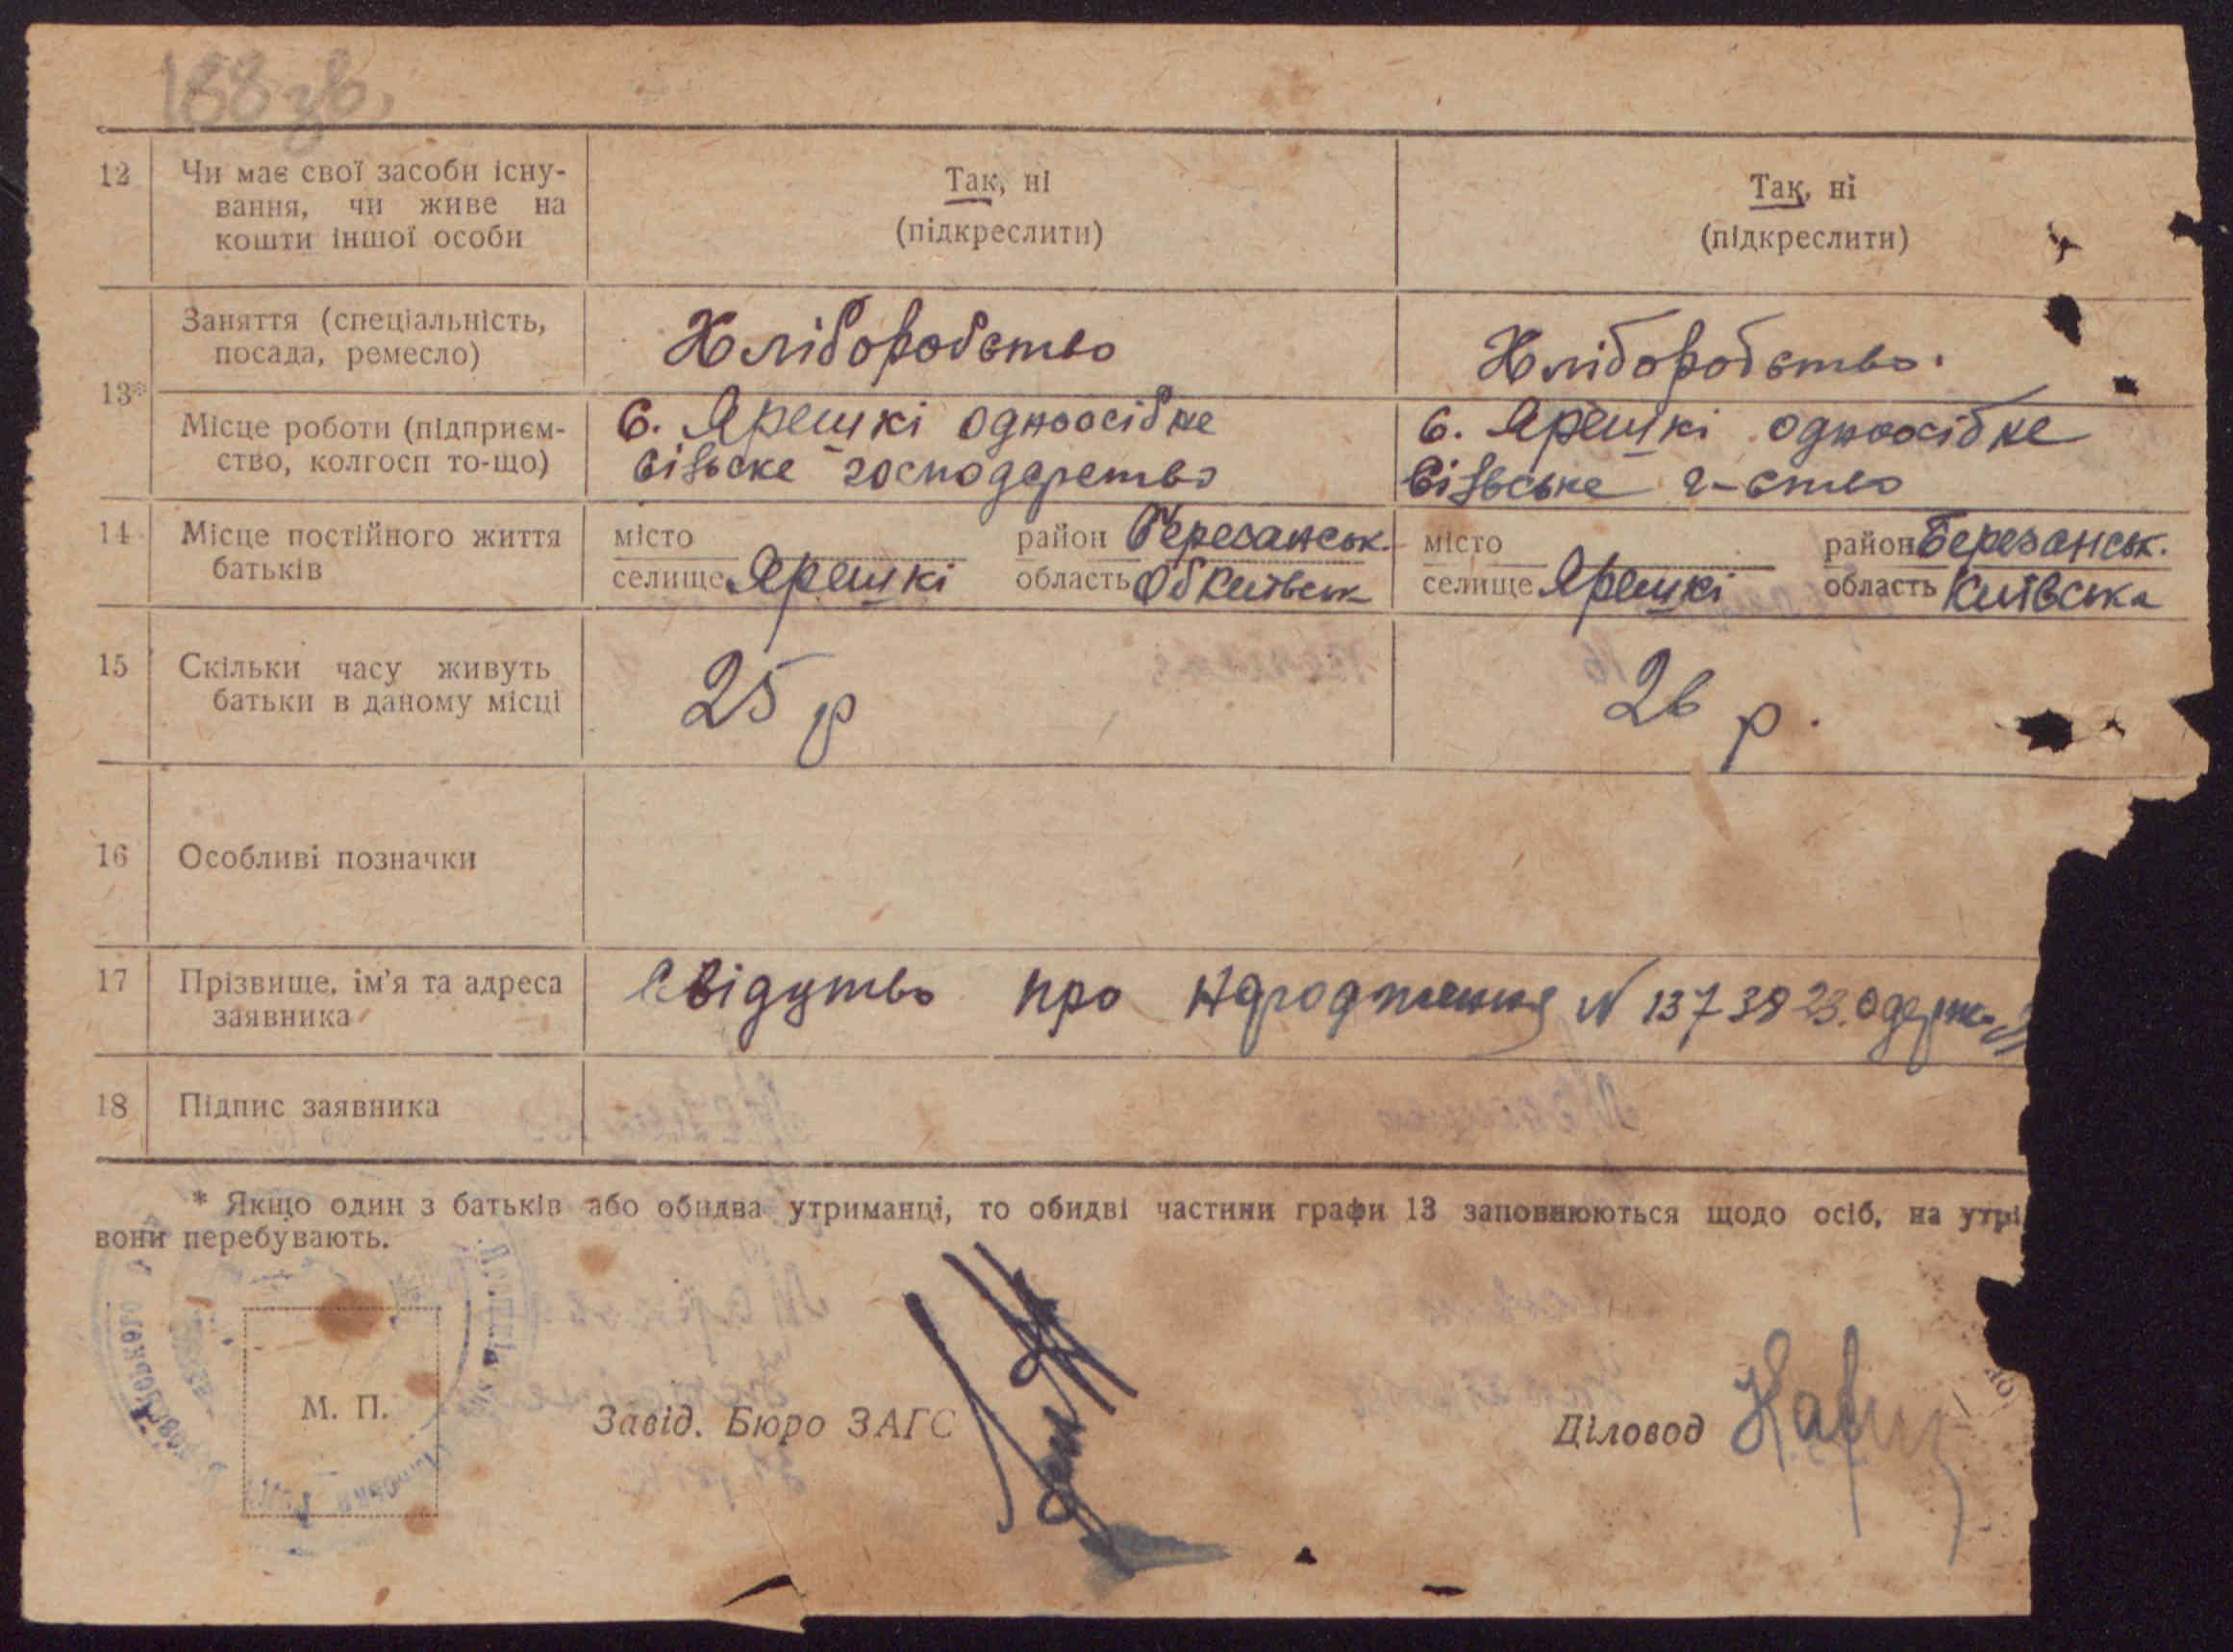 188 зв.
12 Чи має свої засоби існу-
вання, чи живе на
кошти іншої особи
Так, ні
(підкреслити)
Так, ні
(підкреслити)
13*
Заняття (спеціальність,
посада, ремесло)
Хліборобство
Хліборобство.
Місце роботи (підприєм-
ство, колгосп то-що)
с. Ярешкі одноосібне
сільське господарство
с. Ярешкі одноосібне
сільське г-ство
14 Місце постійного життя
батьків
місто район Березанськ.
селище Ярешкі область Київськ
місто район Березанськ.
селище Ярешкі область Київська
15 Скільки часу живуть
батьки в даному місці
25 р
26 р.
16 Особливі позначки
17 Прізвище, ім'я та адреса
заявника
Свідутво про народження N 137 38 23.
18 Підпис заявника
* Якщо один з батьків або обидва утриманці, то обидві частини графи 13 заповнюються щодо осіб, на утри
вони перебувають.
М. П.
Завід. Бюро ЗАГС
Діловод